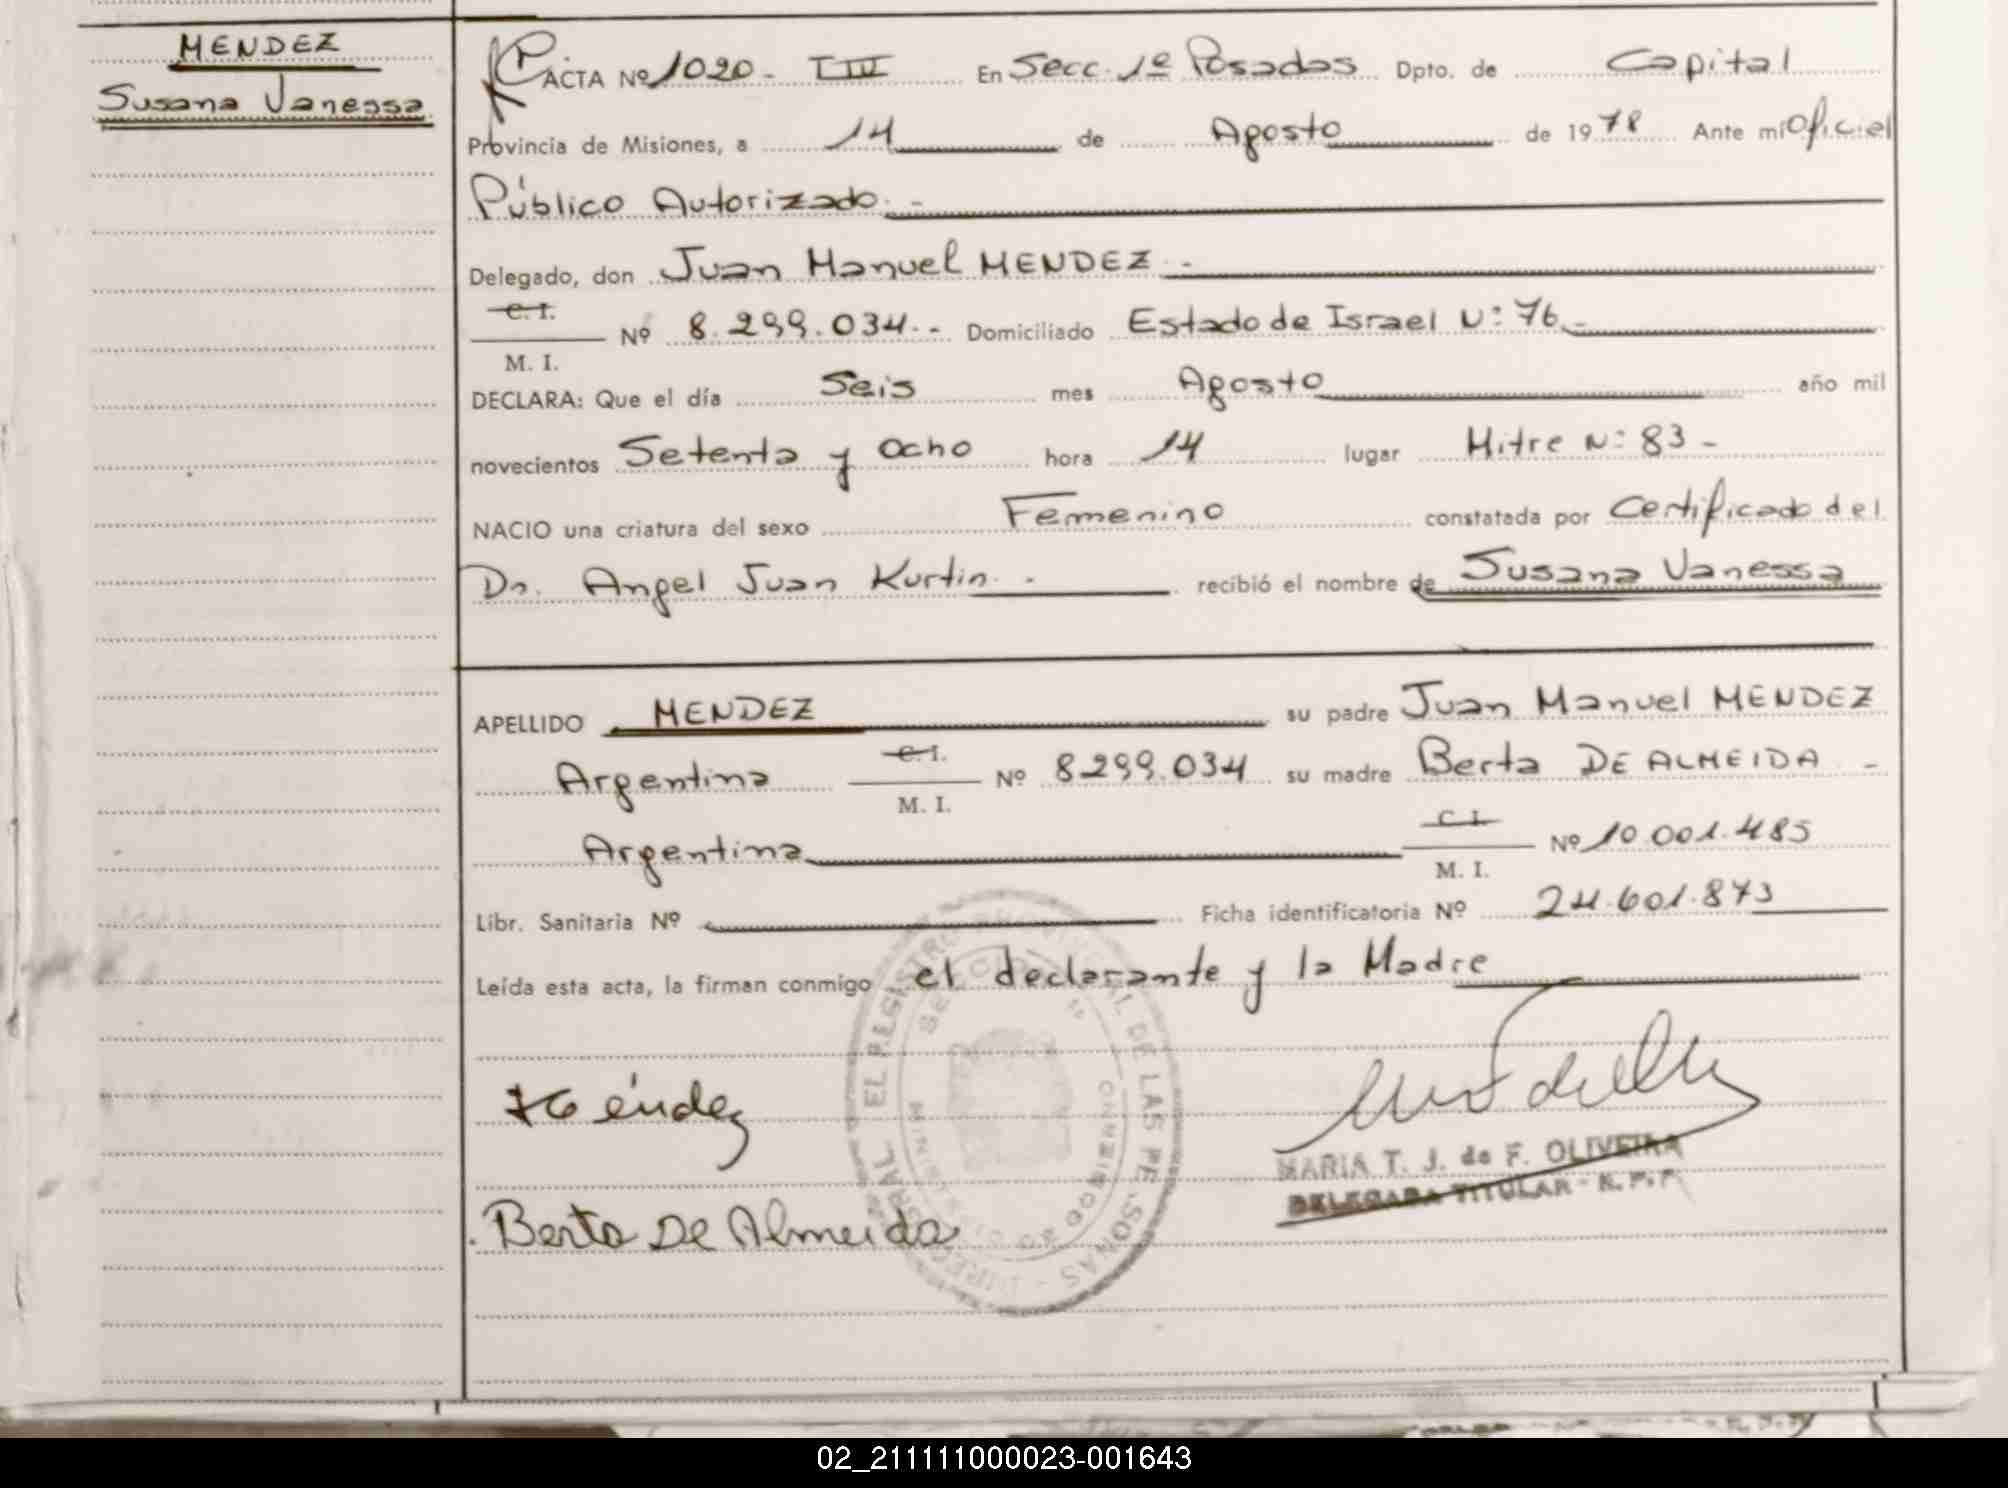 MENDEZ
Susana Vanessa
ACTA Nº 1020 - T III En Secc. 1º Posadas Dpto. de Capital
Provincia de Misiones, a 14 de Agosto de 1978 Ante mi Oficial
Público Autorizado. -
Delegado, don Juan Manuel MENDEZ. -
C. I.
Nº 8.299.034. - Domiciliado Estado de Israel Nº 76 -
M. I.
DECLARA: Que el día Seis mes Agosto año mil
novecientos Setenta y Ocho hora 14 lugar Mitre Nº 83 -
NACIO una criatura del sexo Femenino constatada por Certificado del
Dr. Angel Juan Kurtin. - recibió el nombre de Susana Vanessa
APELLIDO MENDEZ su padre Juan Manuel MENDEZ
Argentina C. I. Nº 8299.034 su madre Berta DE ALMEIDA -
M. I.
C. I.
Argentina Nº 10.001.485
M. I.
Libr. Sanitaria Nº Ficha identificatoria Nº 24.601.873
Leída esta acta, la firman conmigo el declarante y la Madre
Méndez
MARIA T. J. de F. OLIVEIRA
DELEGADA TITULAR - R. P. P.
Berta De Almeida
02_211111000023-001643